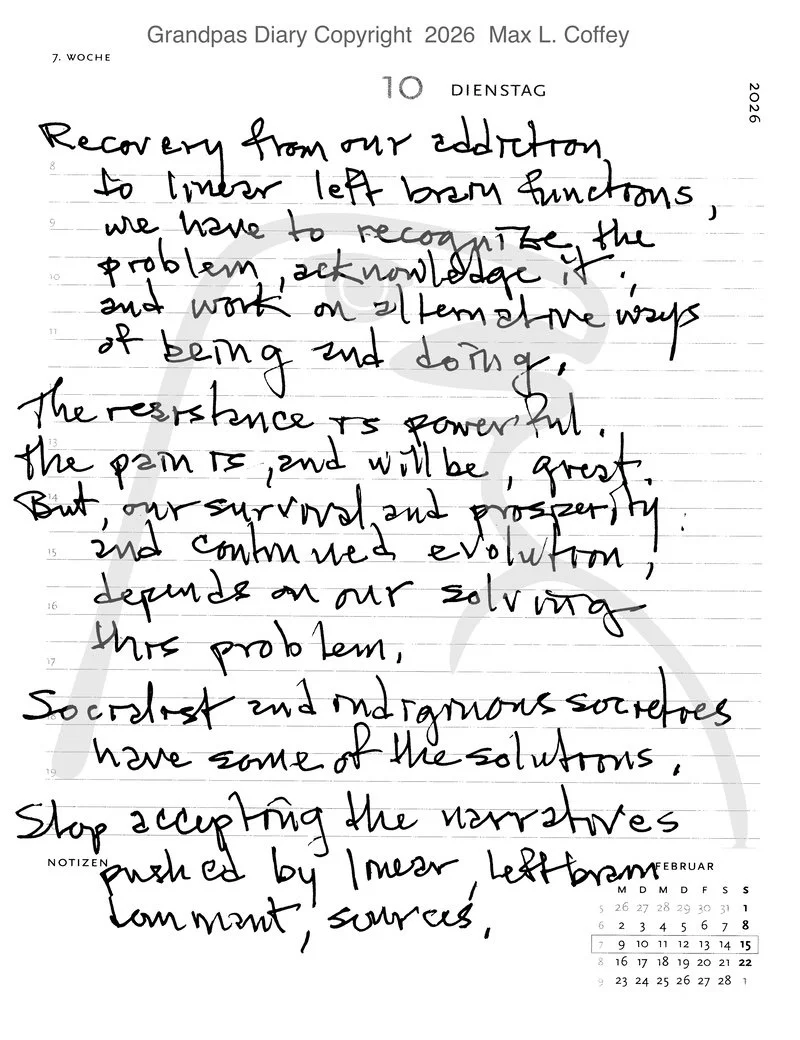 Grandpas Diary Copyright 2026 Max L. Coffey
7. WOCHE
10 DIENSTAG
2026
Recovery from our addiction
to linear left brain functions,
we have to recognize the
problem, acknowledge it,
and work on alternative ways
of being and doing.
The resistance is powerful.
the pain is, and will be, great.
But, our survival and prosperity
and continued evolution,
depends on our solving
this problem.
Socialist and indiginuous societies
have some of the solutions.
Stop accepting the narratives
pushed by linear, left brain
dominant, sources.
8
9
10
11
13
14
15
16
17
19
NOTIZEN
FEBRUAR
M D M D F S S
5 26 27 28 29 30 31 1
6 2 3 4 5 6 7 8
7 9 10 11 12 13 14 15
8 16 17 18 19 20 21 22
9 23 24 25 26 27 28 1